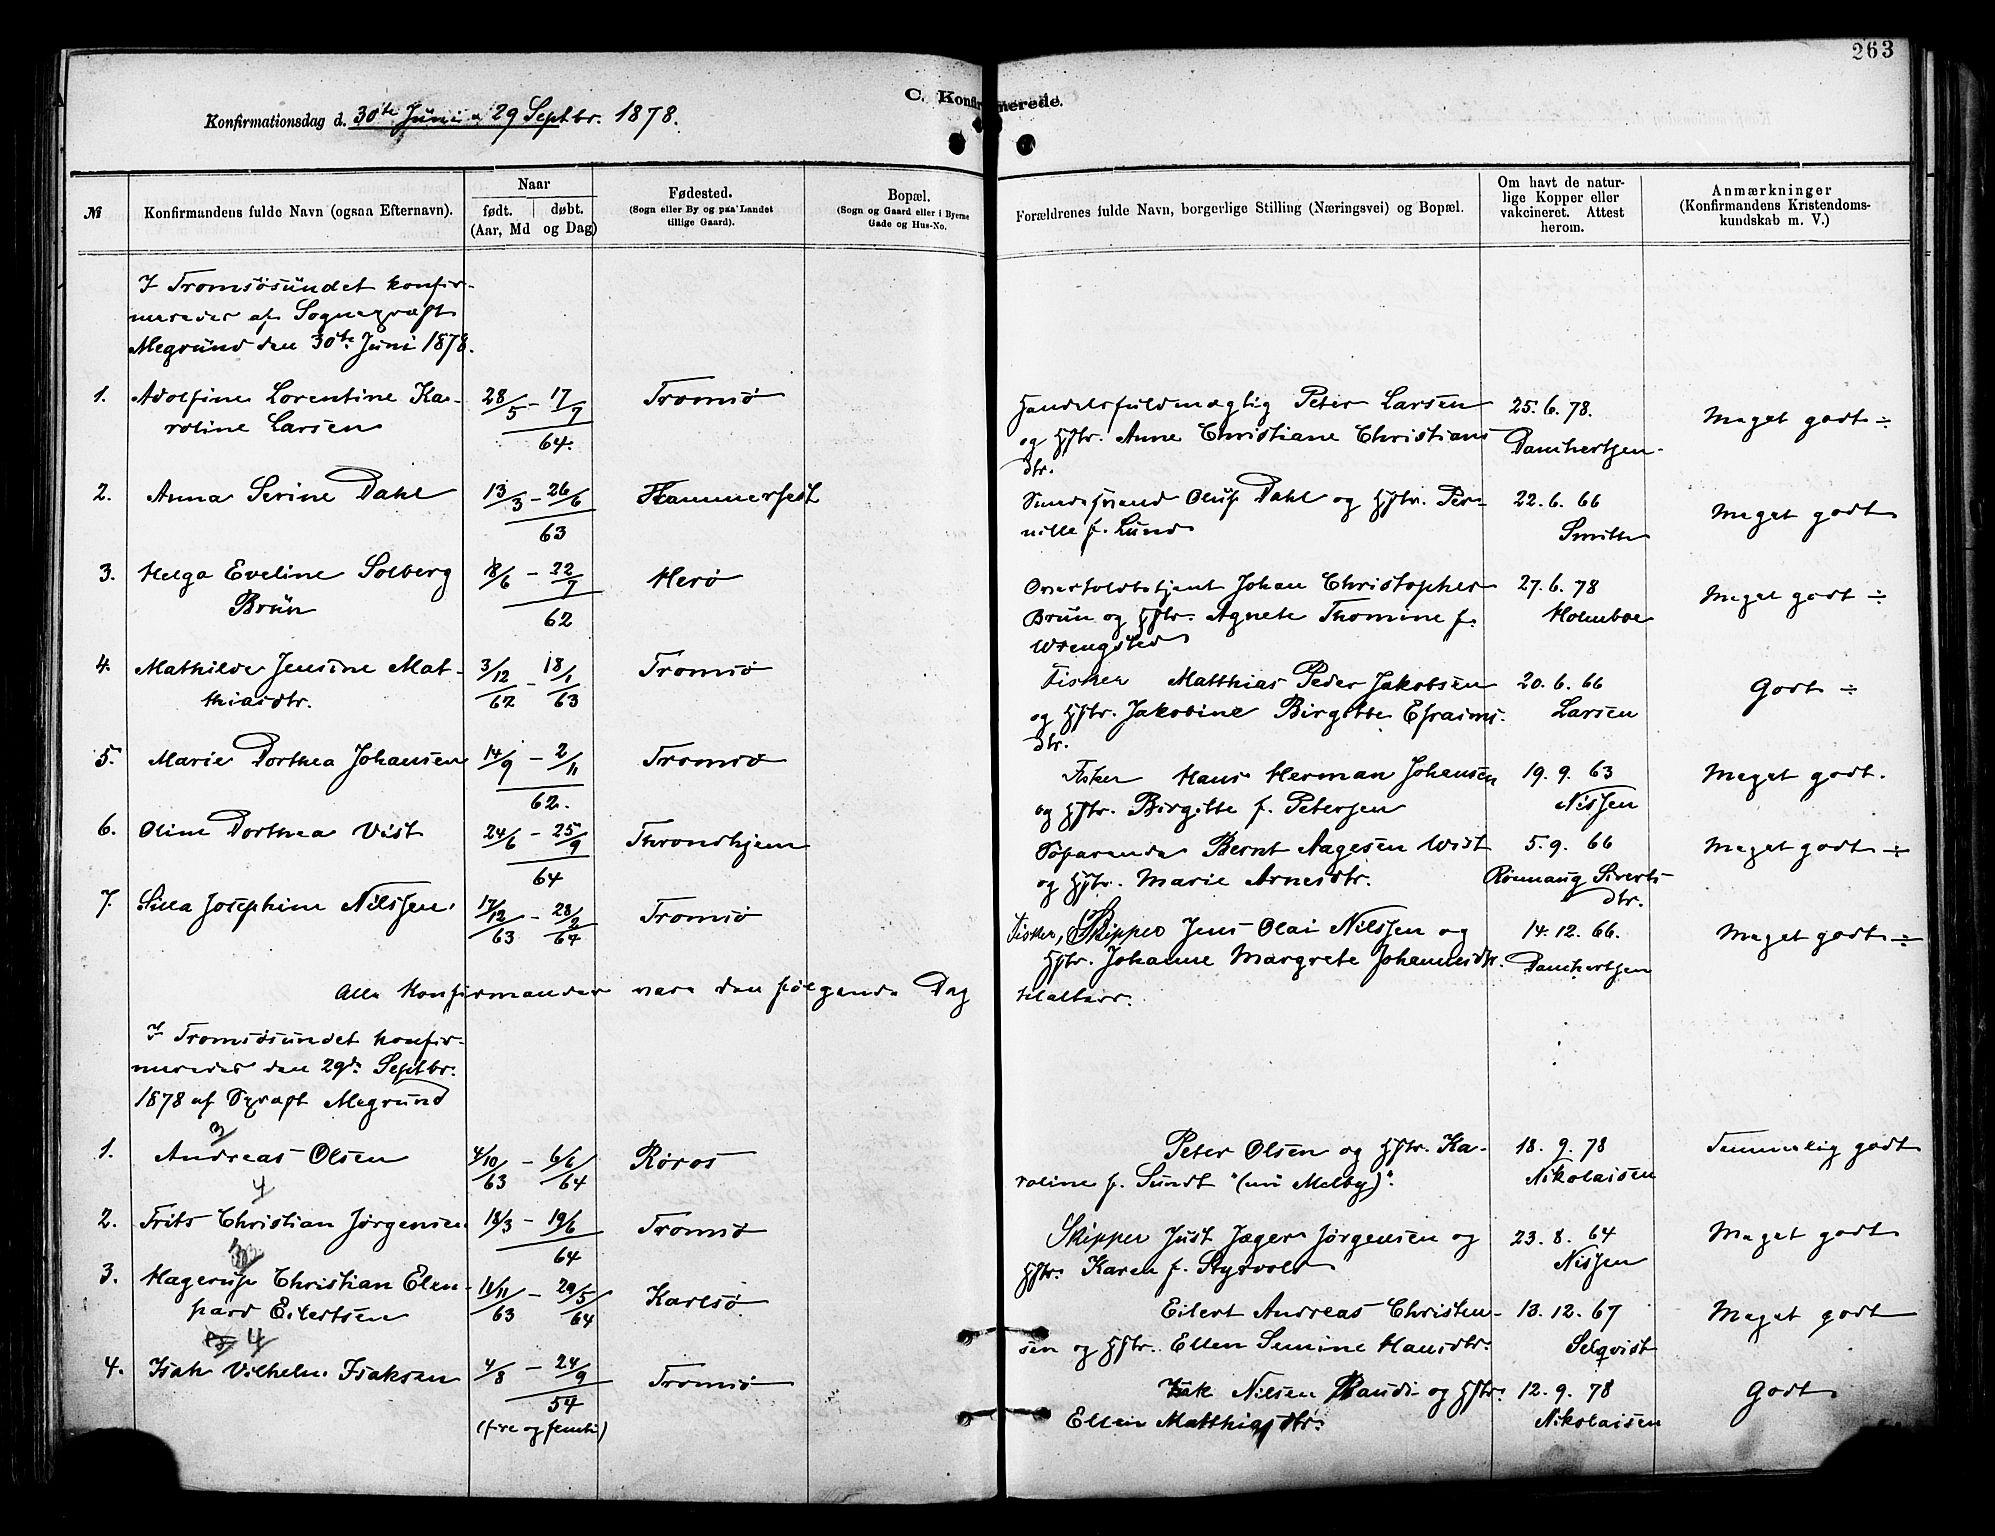 263
C. Konfirmerede.
Konfirmationsdag d. 30te Juni & 29 Septbr. 1878.
№
Konfirmandens fulde Navn (ogsaa Efternavn).
Naar
født. døbt.
(Aar, Md og Dag)
Fødested.
(Sogn eller By og paa Landet
tillige Gaard).
Bopæl.
(Sogn og Gaard eller i Byerne
Gade og Hus-No.
Forældrenes fulde Navn, borgerlige Stilling (Næringsvei) og Bopæl.
Om havt de natur-
lige Kopper eller
vakcineret. Attest
herom.
Anmærkninger
(Konfirmandens Kristendoms-
kundskab m. V.)
I Tromsøsundet konfir-
merede af Sognepræst
Megrund den 30te Juni 1878.
1. Adolfine Lorentine Ka- 28/5 - 17/7 Tromsø Handelsfuldmægtig Peter Larsen 25. 6. 78. Meget godt ÷
roline Larsen 64. og Hstr. Anne Christiane Christians
dtr.
2. Anna Serine Dahl 13/3 - 26/6 Hammerfest Oluf Dahl og Hstr. Per- 22. 6. 66 Meget godt
63 nille f. Lund Smith
3. Helga Eveline Solberg 18/6 - 22/7 Herø Overtoldbetjent Johan Christopher 27. 6. 78 Meget godt ÷
Brün 62 Brün og Hstr. Agnete Thomine f. Holmboe
Wrengsted
4. Mathilde Jensine Mat- 3/12 62 - 18/1 63 Tromsø Fisker Matthias Peder Jakobsen 20. 6. 66 Godt ÷
thiasdtr. og Hstr. Jakobine Birgitte Efraims- Larsen
dtr.
5. Marie Dorthea Johansen 14/9 - 2/11 Tromsø Fisker Hans Herman Johansen 19. 9. 63 Meget godt.
62. og Hstr. Birgitte f. Petersen Nissen
6. Oline Dorthea Vist 24/6 - 25/9 Throndhjem Søfarende Bernt Aagesen Wist 5. 9. 66 Meget godt ÷
64 og Hstr. Marie Arnesdtr. Rønnaug Siverts-
dtr.
7 Silla Josephine Nilssen. 17/12 63 - 28/2 64 Tromsø Fisker, Skipper Jens Olai Nilssen og 14. 12. 66. Meget godt ÷
Hstr. Johanne Margrete Johannesdtr.
Alle Konfirmander vare den følgende Dag tilalters.
I Tromsøsundet konfir-
merede den 29de Septbr.
1878 af Spræst Megrund
3
1. Andreas Olsen 4/10 63 - 6/6 64 Røros Peter Olsen og Hstr. Ka- 18. 9. 78 Temmelig godt
roline f. Sundt "(nu Melby)". Nikolaisen
4
2. Frits Christian Jørgensen 18/3 - 19/6 Tromsø Skipper Just Jæger Jørgensen og 23. 8. 64 Meget godt
64 Hstr. Karen f. Styrvold Nissen
3. Hagerup Christian Elen- 11/11 63 - 29/5 64 Karlsø Eilert Andreas Christen- 13. 12. 67 Meget godt
hard Eilertsen sen og Hstr. Ellen Semine Hansdtr. Selqvist
4
4. Isak Vilhelm Isaksen 4/8 - 24/9 Tromsø Isak Nilsen og Hstr. 12. 9. 78 Godt
54 Ellen Matthiasdtr. Nikolaisen
(fire og femti)